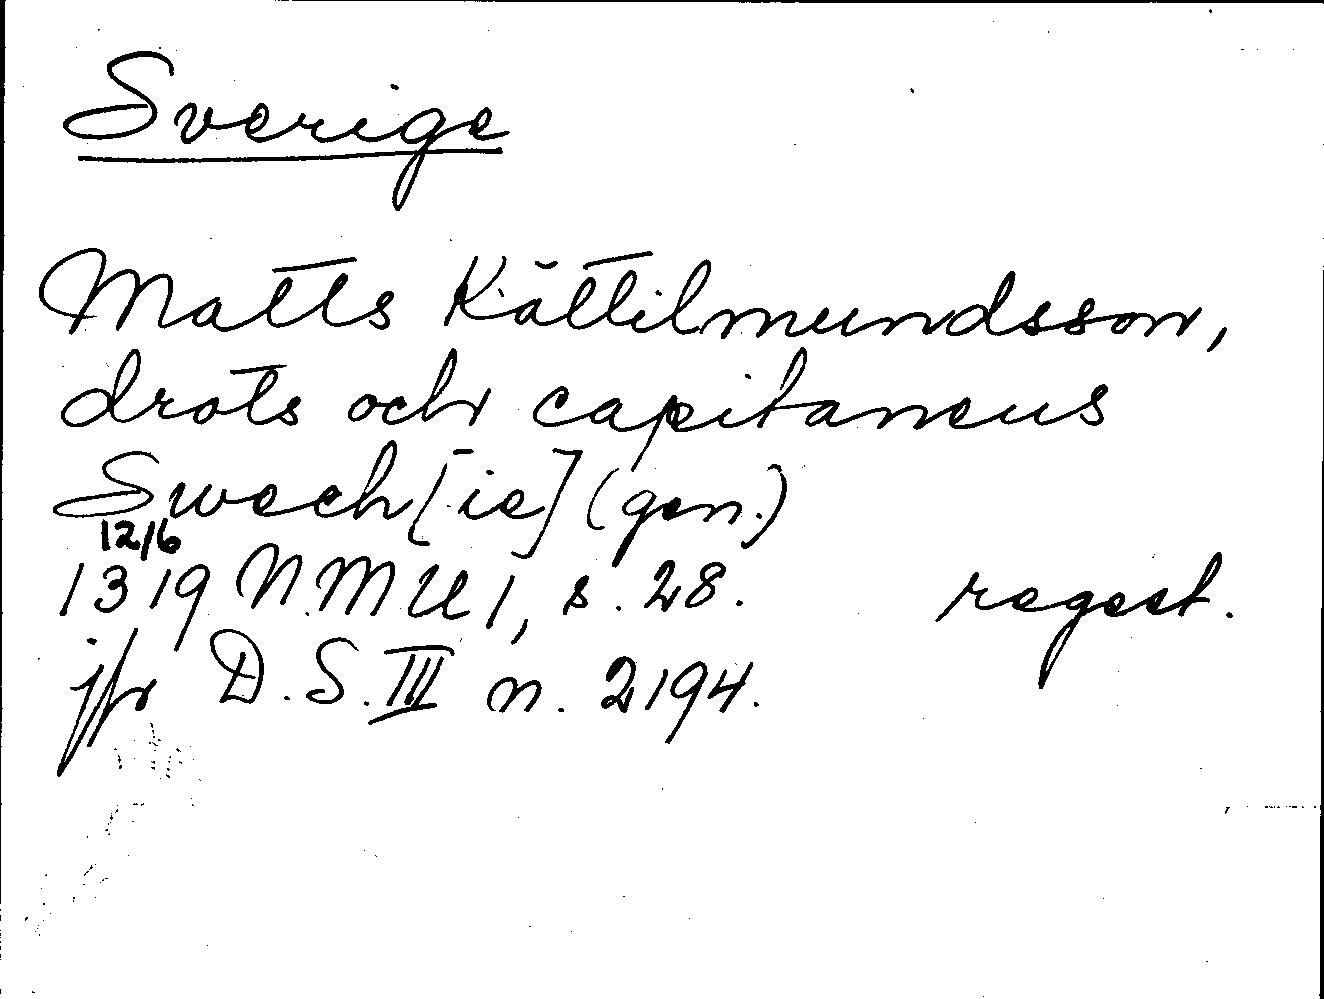 Sverige
Matts Kättilmundsson,
drots och capitaneus
Swech[ie] (gen.)
12/6
1319 N.M.U 1, s. 28. regest.
jfr D.S. III n. 2194.